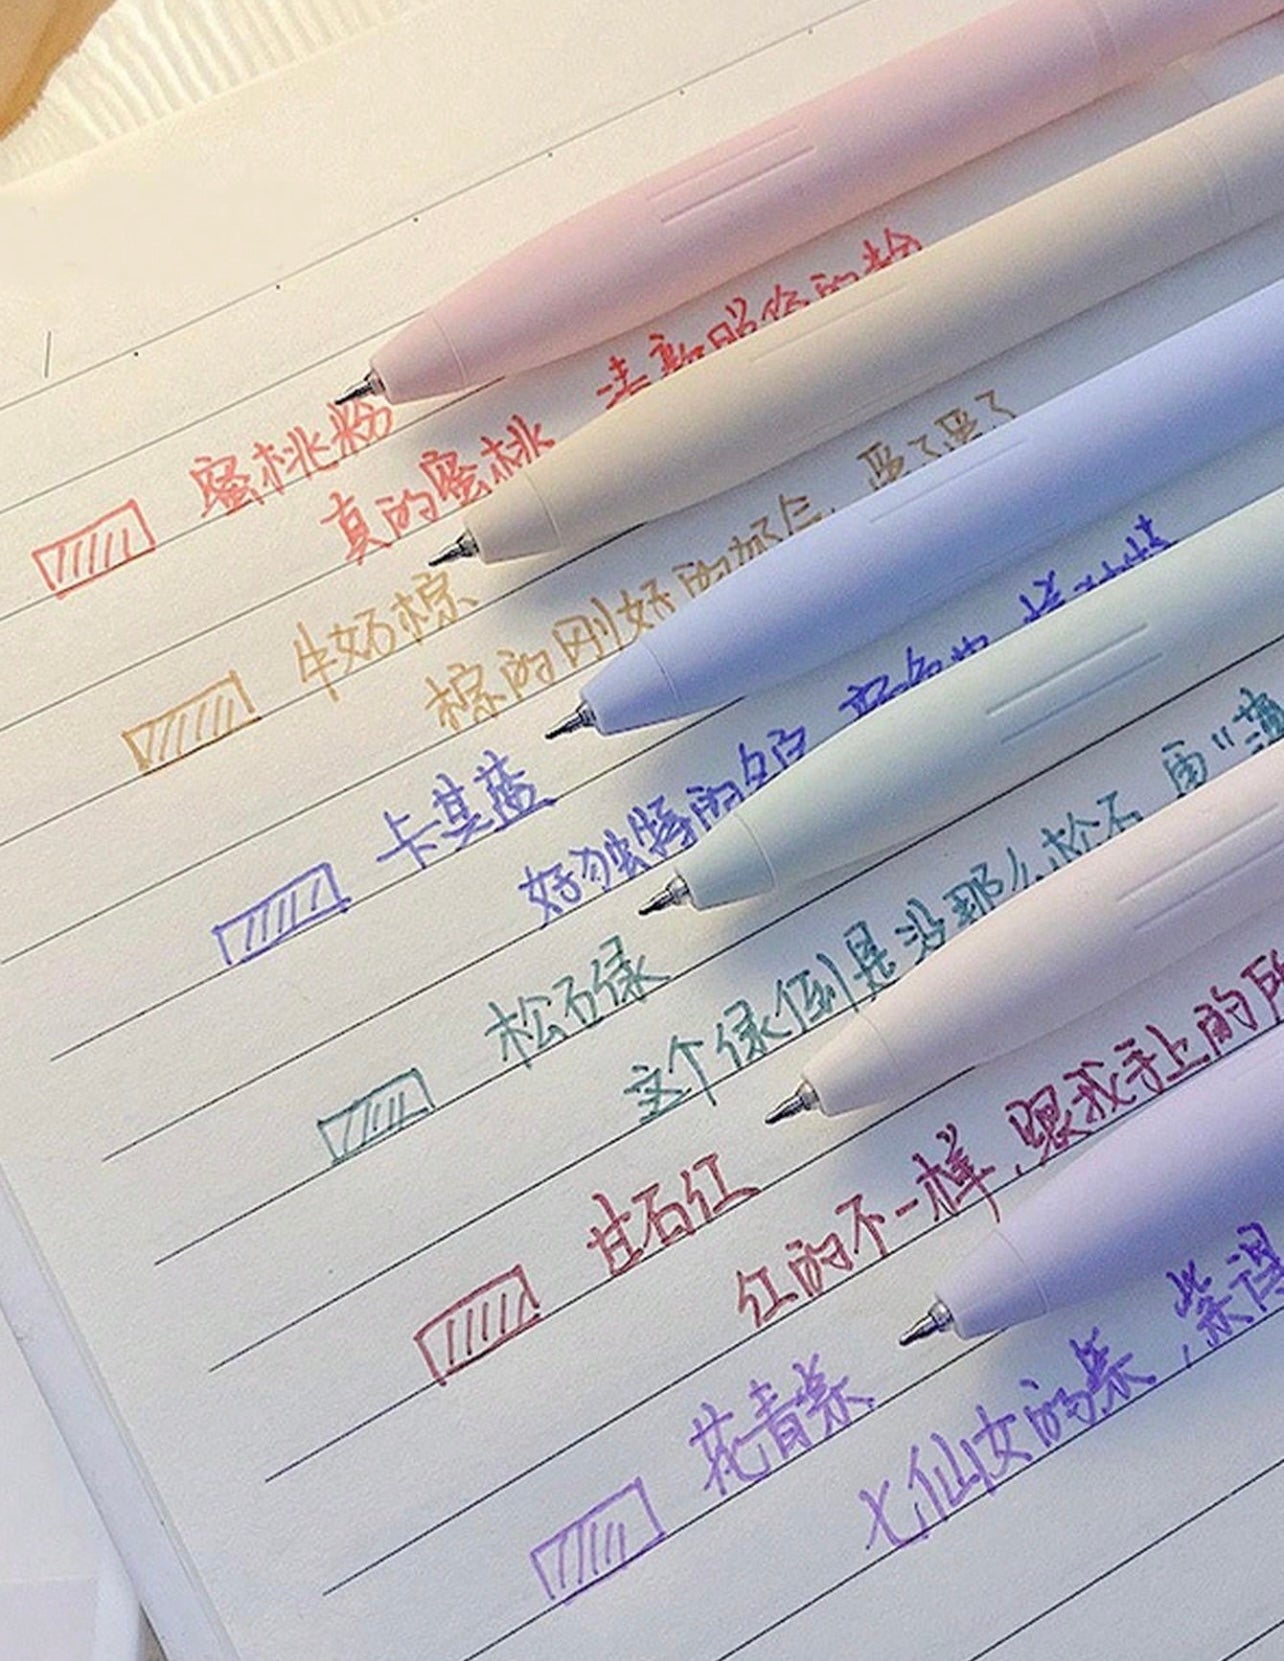 蜜桃粉
真的蜜桃
牛奶棕
棕的刚好的奶 爱了爱了
卡其蓝
好独特的
松石绿
这个绿倒是没那么松石
甘石红
红的不一样，跟我手上的
花青紫
七仙女的紫，紫得